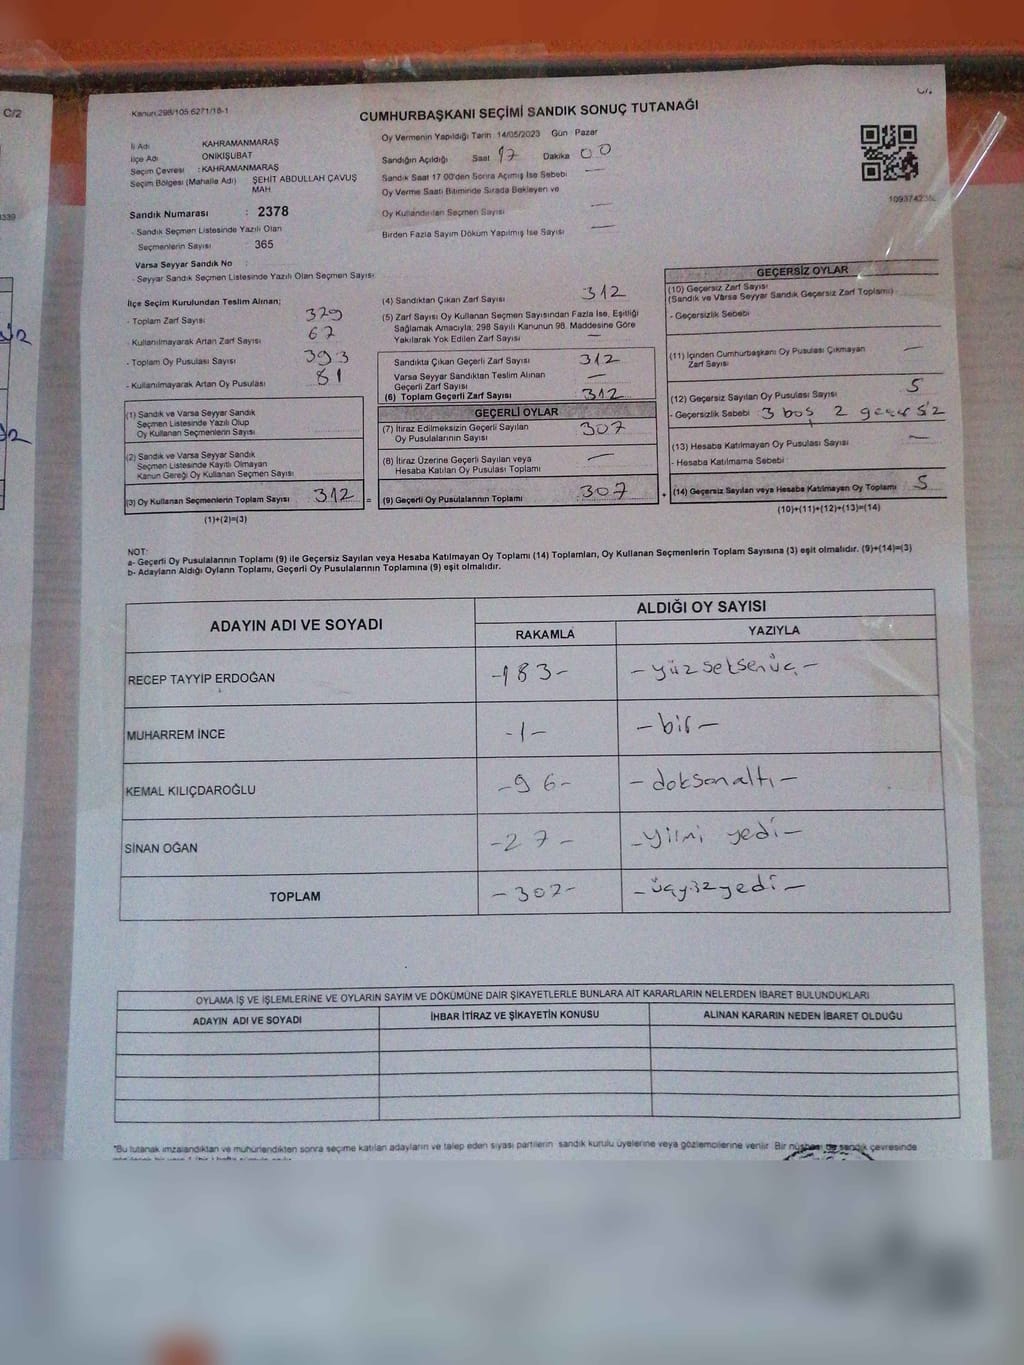 C/2
Kanun:298/105 6271/18-1
CUMHURBAŞKANI SEÇİMİ SANDIK SONUÇ TUTANAĞI
İl Adı KAHRAMANMARAŞ
İlçe Adı ONİKİŞUBAT
Seçim Çevresi : KAHRAMANMARAŞ
Seçim Bölgesi (Mahalle Adı) ŞEHİT ABDULLAH ÇAVUŞ
MAH
Sandık Numarası : 2378
- Sandık Seçmen Listesinde Yazılı Olan
Seçmenlerin Sayısı 365
Varsa Seyyar Sandık No :
- Seyyar Sandık Seçmen Listesinde Yazılı Olan Seçmen Sayısı
Oy Vermenin Yapıldığı Tarih 14/05/2023 Gün : Pazar
Sandığın Açıldığı Saat 17 Dakika 00
Sandık Saat 17.00'den Sonra Açılmış İse Sebebi —
Oy Verme Saati Bitiminde Sırada Bekleyen ve
Oy Kullandırılan Seçmen Sayısı —
Birden Fazla Sayım Döküm Yapılmış İse Sayısı —
İlçe Seçim Kurulundan Teslim Alınan;
- Toplam Zarf Sayısı 379
- Kullanılmayarak Artan Zarf Sayısı 67
- Toplam Oy Pusulası Sayısı 393
- Kullanılmayarak Artan Oy Pusulası 81
(1) Sandık ve Varsa Seyyar Sandık
Seçmen Listesinde Yazılı Olup
Oy Kullanan Seçmenlerin Sayısı
(2) Sandık ve Varsa Seyyar Sandık
Seçmen Listesinde Kayıtlı Olmayan
Kanun Gereği Oy Kullanan Seçmen Sayısı
(3) Oy Kullanan Seçmenlerin Toplam Sayısı 312 =
(1)+(2)=(3)
(4) Sandıktan Çıkan Zarf Sayısı 312
(5) Zarf Sayısı Oy Kullanan Seçmen Sayısından Fazla İse, Eşitliği
Sağlamak Amacıyla; 298 Sayılı Kanunun 98. Maddesine Göre
Yakılarak Yok Edilen Zarf Sayısı —
Sandıkta Çıkan Geçerli Zarf Sayısı 312
Varsa Seyyar Sandıktan Teslim Alınan
Geçerli Zarf Sayısı —
(6) Toplam Geçerli Zarf Sayısı 312
GEÇERLİ OYLAR
(7) İtiraz Edilmeksizin Geçerli Sayılan
Oy Pusulalarının Sayısı 307
(8) İtiraz Üzerine Geçerli Sayılan veya
Hesaba Katılan Oy Pusulası Toplamı —
(9) Geçerli Oy Pusulalarının Toplamı 307 +
GEÇERSİZ OYLAR
(10) Geçersiz Zarf Sayısı
(Sandık ve Varsa Seyyar Sandık Geçersiz Zarf Toplamı)
- Geçersizlik Sebebi
(11) İçinden Cumhurbaşkanı Oy Pusulası Çıkmayan
Zarf Sayısı —
(12) Geçersiz Sayılan Oy Pusulası Sayısı 5
- Geçersizlik Sebebi 3 boş, 2 geçersiz
(13) Hesaba Katılmayan Oy Pusulası Sayısı —
- Hesaba Katılmama Sebebi
(14) Geçersiz Sayılan veya Hesaba Katılmayan Oy Toplamı 5
(10)+(11)+(12)+(13)=(14)
NOT:
a- Geçerli Oy Pusulalarının Toplamı (9) ile Geçersiz Sayılan veya Hesaba Katılmayan Oy Toplamı (14) Toplamları, Oy Kullanan Seçmenlerin Toplam Sayısına (3) eşit olmalıdır. (9)+(14)=(3)
b- Adayların Aldığı Oyların Toplamı, Geçerli Oy Pusulalarının Toplamına (9) eşit olmalıdır.
ADAYIN ADI VE SOYADI ALDIĞI OY SAYISI
RAKAMLA YAZIYLA
RECEP TAYYİP ERDOĞAN -183- -yüzseksenüç-
MUHARREM İNCE -1- -bir-
KEMAL KILIÇDAROĞLU -96- -doksanaltı-
SİNAN OĞAN -27- -yirmi yedi-
TOPLAM -307- -üçyüzyedi-
OYLAMA İŞ VE İŞLEMLERİNE VE OYLARIN SAYIM VE DÖKÜMÜNE DAİR ŞİKAYETLERLE BUNLARA AİT KARARLARIN NELERDEN İBARET BULUNDUKLARI
ADAYIN ADI VE SOYADI İHBAR İTİRAZ VE ŞİKAYETİN KONUSU ALINAN KARARIN NEDEN İBARET OLDUĞU
*Bu tutanak imzalandıktan ve mühürlendikten sonra seçime katılan adayların ve talep eden siyasi partilerin sandık kurulu üyelerine veya gözlemcilerine verilir. Bir nüshası da sandık çevresinde